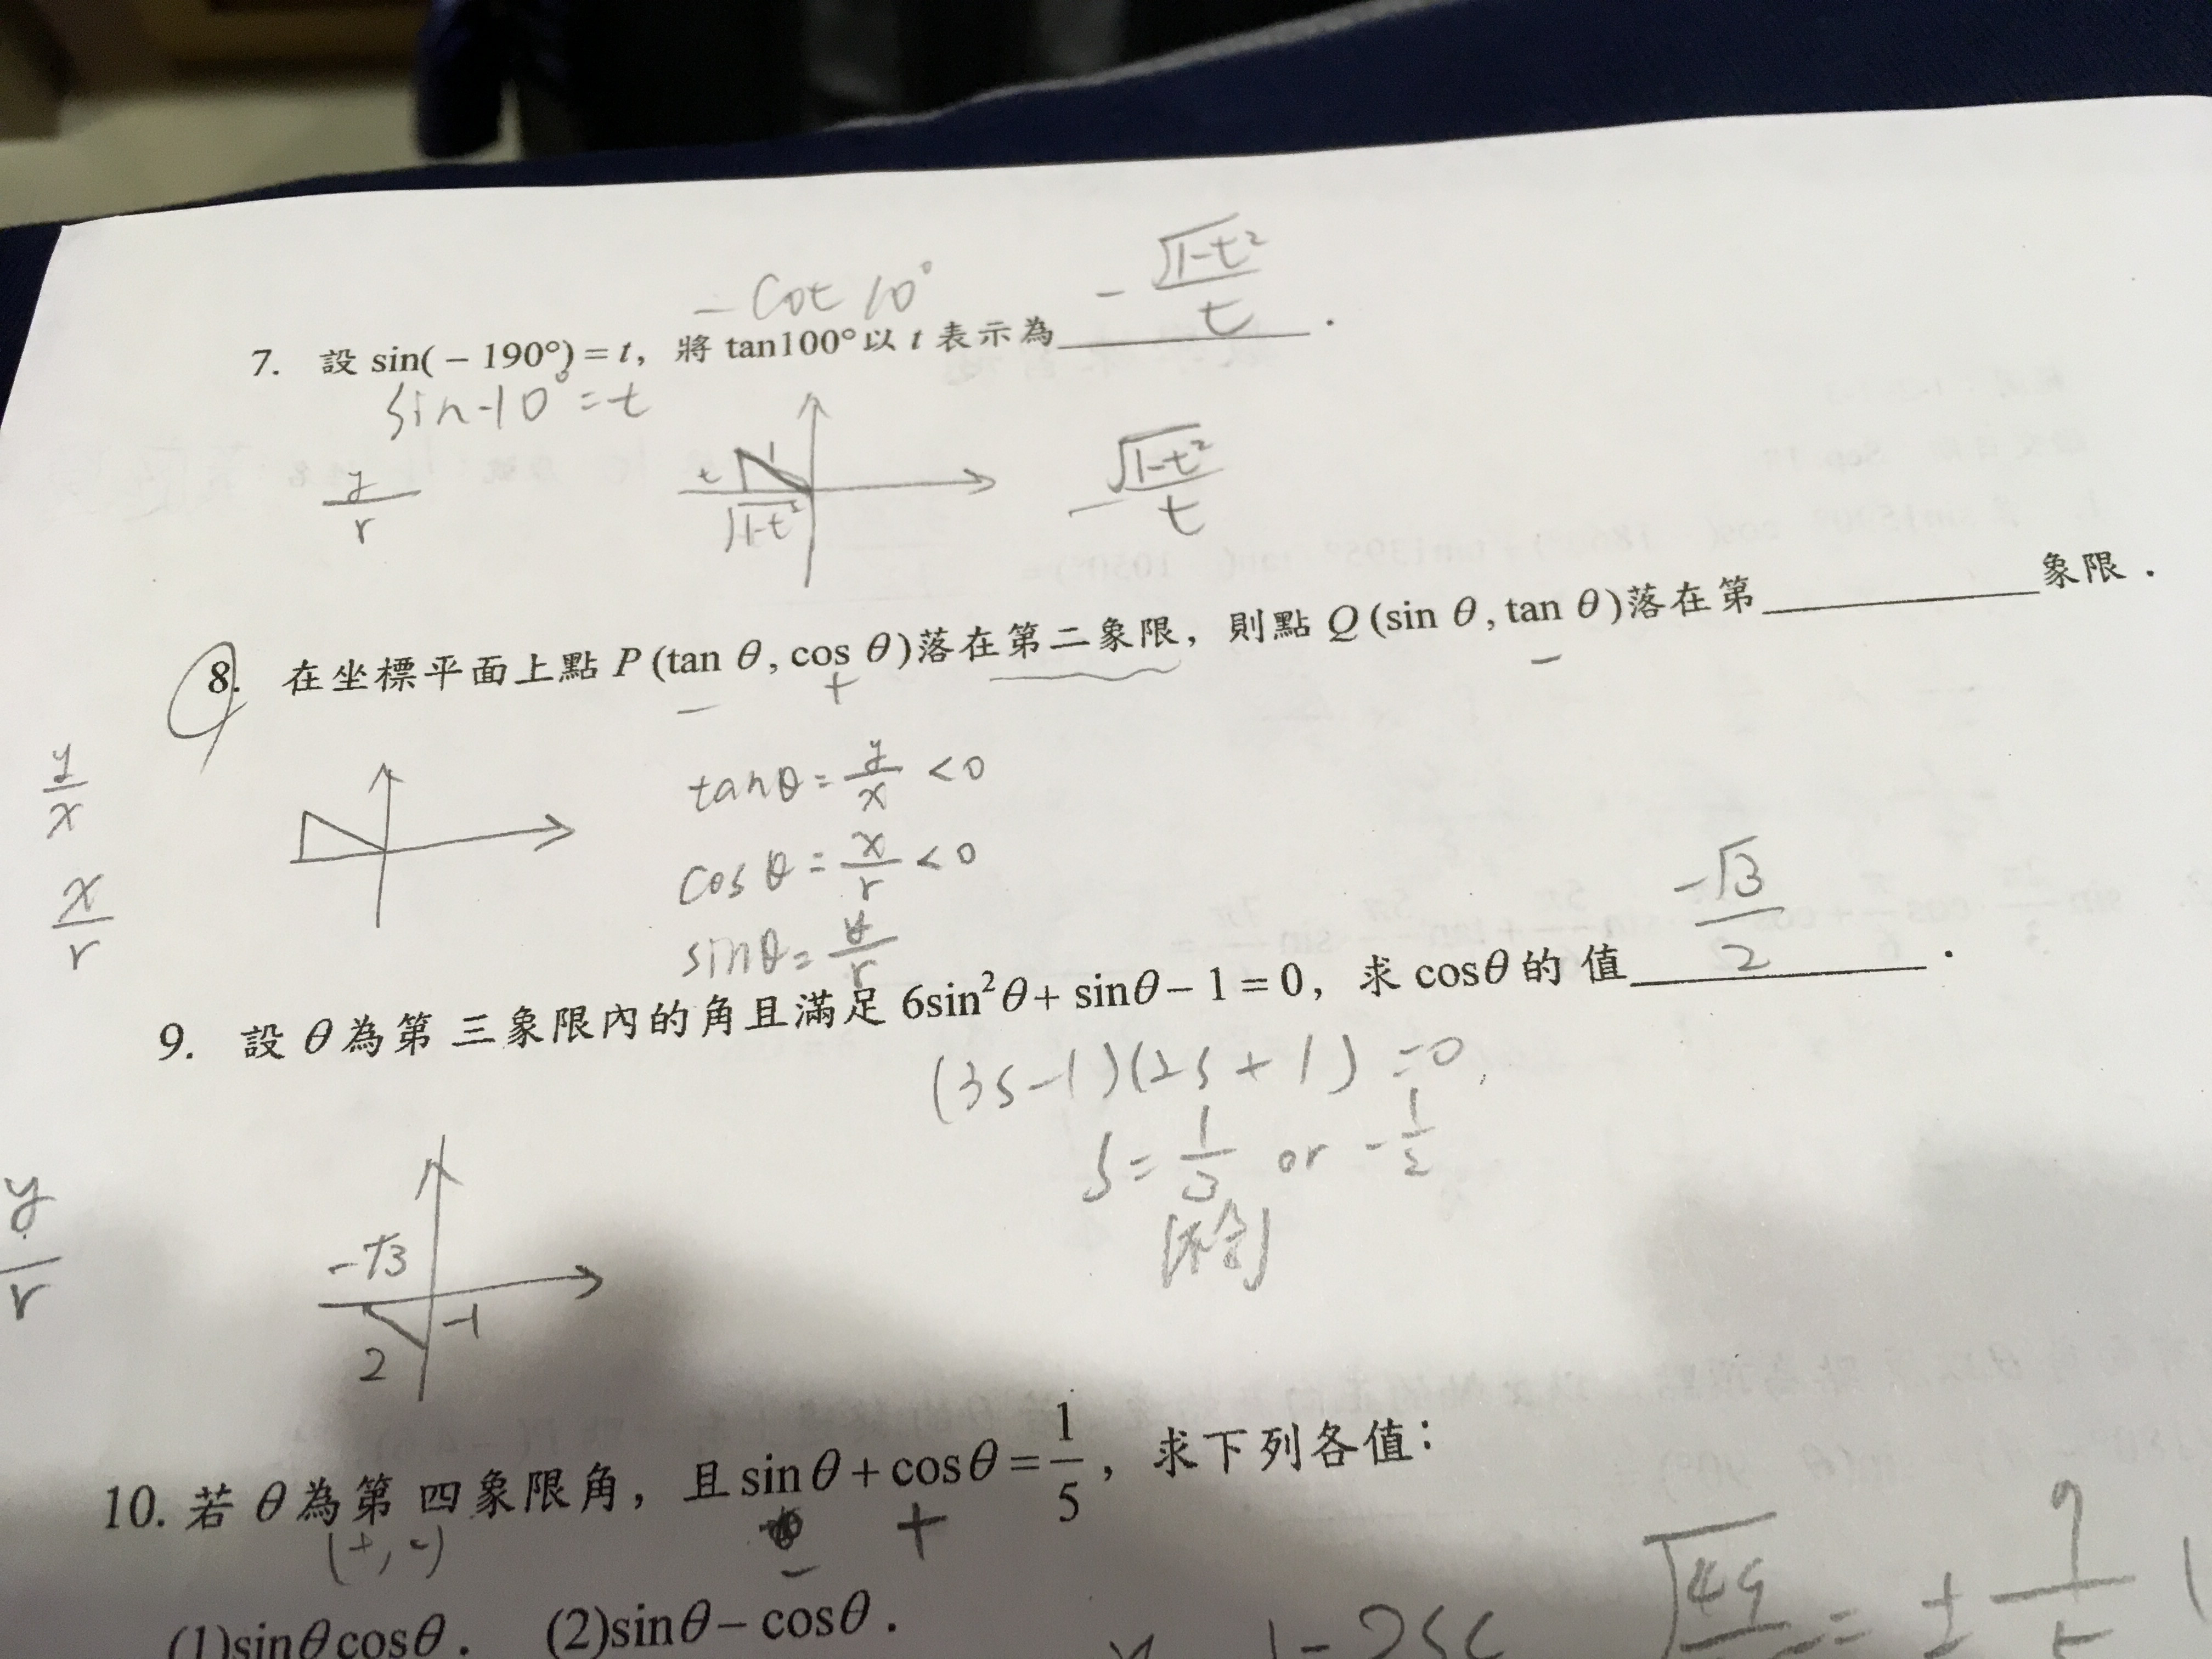 - cot 10°
- √1-t² / t
7. 設 sin(－190°)＝t，將 tan100°以 t 表示為＿＿＿＿．
sin-10° = t
y/r
t 1 √1-t²
- √1-t² / t
8. 在坐標平面上點 P (tan θ , cos θ)落在第二象限，則點 Q (sin θ , tan θ)落在第＿＿＿＿象限．
- + -
y/x
tanθ = y/x <0
x/r
cosθ = x/r <0
sinθ = y/r
-√3/2
9. 設 θ 為第 三象限內的角且滿足 6sin²θ+ sinθ－1＝0，求 cosθ 的 值＿＿＿＿．
(3s-1)(2s+1) =0
s = 1/3 or -1/2
y/r
-√3
-1
2
10. 若 θ 為第 四象限角，且 sinθ＋cosθ＝1/5，求下列各值：
(+,-)
- +
(1)sinθcosθ． (2)sinθ－cosθ．